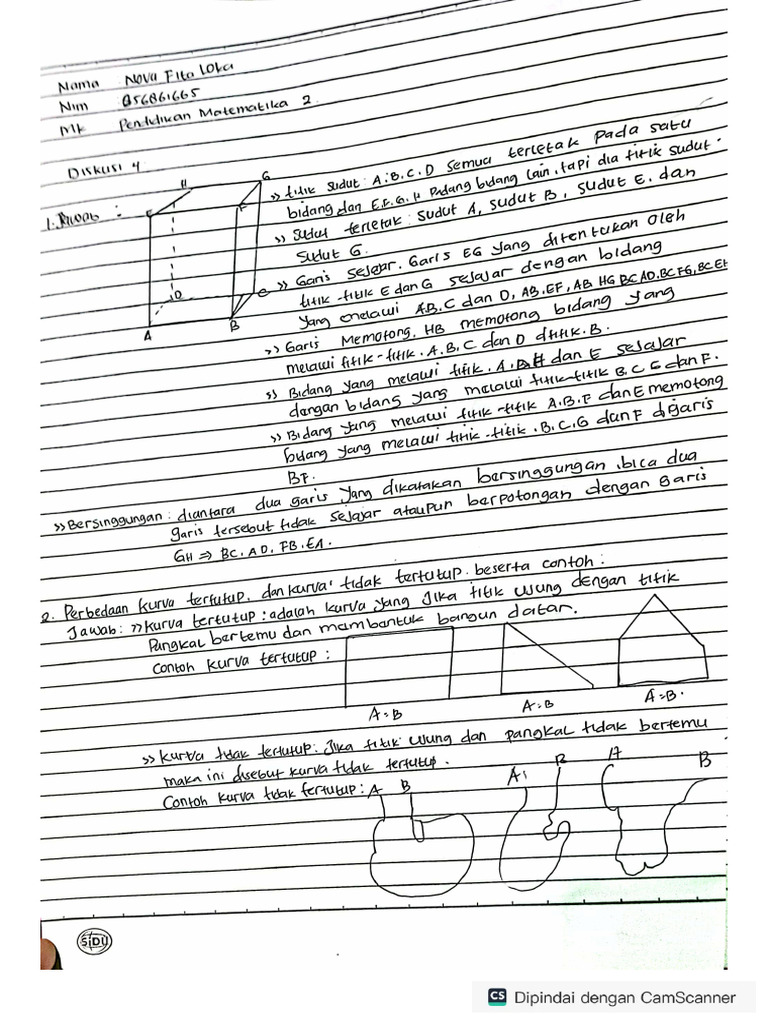 Nama Nova Fita Loka
Nim 856861665
Mk Pendidikan Matematika 2
Diskusi 4
1. Jawab :
H
G
E
F
D
C
A
B
>> titik sudut : A.B.C.D semua terletak pada satu
bidang dan E.F.G.H Padang bidang lain, tapi dia titik sudut.
>> Sudut terletak : Sudut A, sudut B, sudut E. dan
Sudut G.
>> Garis sejajar. Garis EG yang ditentukan oleh
titik-titik E dan G sejajar dengan bidang
yang melawi A.B.C dan D, AB,EF, AB HG BC AD,BC FG,BC EH
>> Garis Memotong. HB memotong bidang yang
melawi titik-titik. A.B.C dan D dititik. B.
>> Bidang yang melawi titik. A.D.H dan E sejajar
dengan bidang yang melalui titik-titik B.C.G dan F.
>> Bidang yang melawi titik-titik A.B.F dan E memotong
bidang yang melawi titik-titik. B.C.G dan F digaris
BF.
>> Bersinggungan : diantara dua garis yang dikatakan bersinggungan bica dua
garis tersebut tidak sejajar ataupun berpotongan dengan garis
GH => BC.AD.FB.EA.
2. Perbedaan kurva tertutup. dan kurva tidak tertutup. beserta contoh :
Jawab : >> kurva tertutup : adalah kurva yang jika titik ujung dengan titik
Pangkal bertemu dan membantuk bangun datar.
Contoh kurva tertutup :
A=B
A=B
A=B.
>> kurva tidak tertutup : Jika titik ujung dan pangkal tidak bertemu
maka ini disebut kurva tidak tertutup.
Contoh kurva tidak tertutup : A B
A
B
A
B
SiDU
CS Dipindai dengan CamScanner